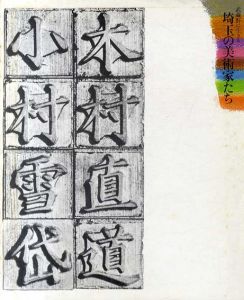 埼玉の美術家たち
木村直道
小村雪岱